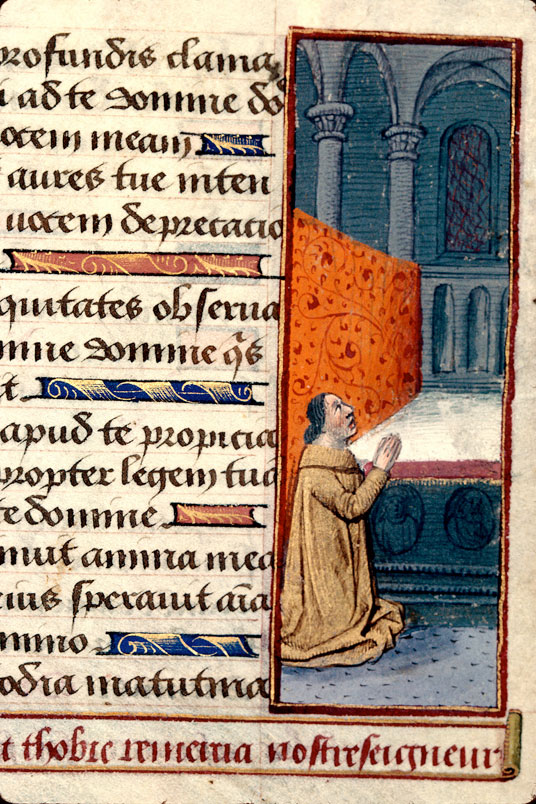 profundis clama
i ad te domine do
ocem meam
aures tue inten
uocem deprecatio
quitates obserua
mine domine q̃s
t
apud te propicia
propter legem tua
te domine
nuit anima mea
eius sperauit aĩa
mino
odia matutina
t thobie remercia nostreseigneur